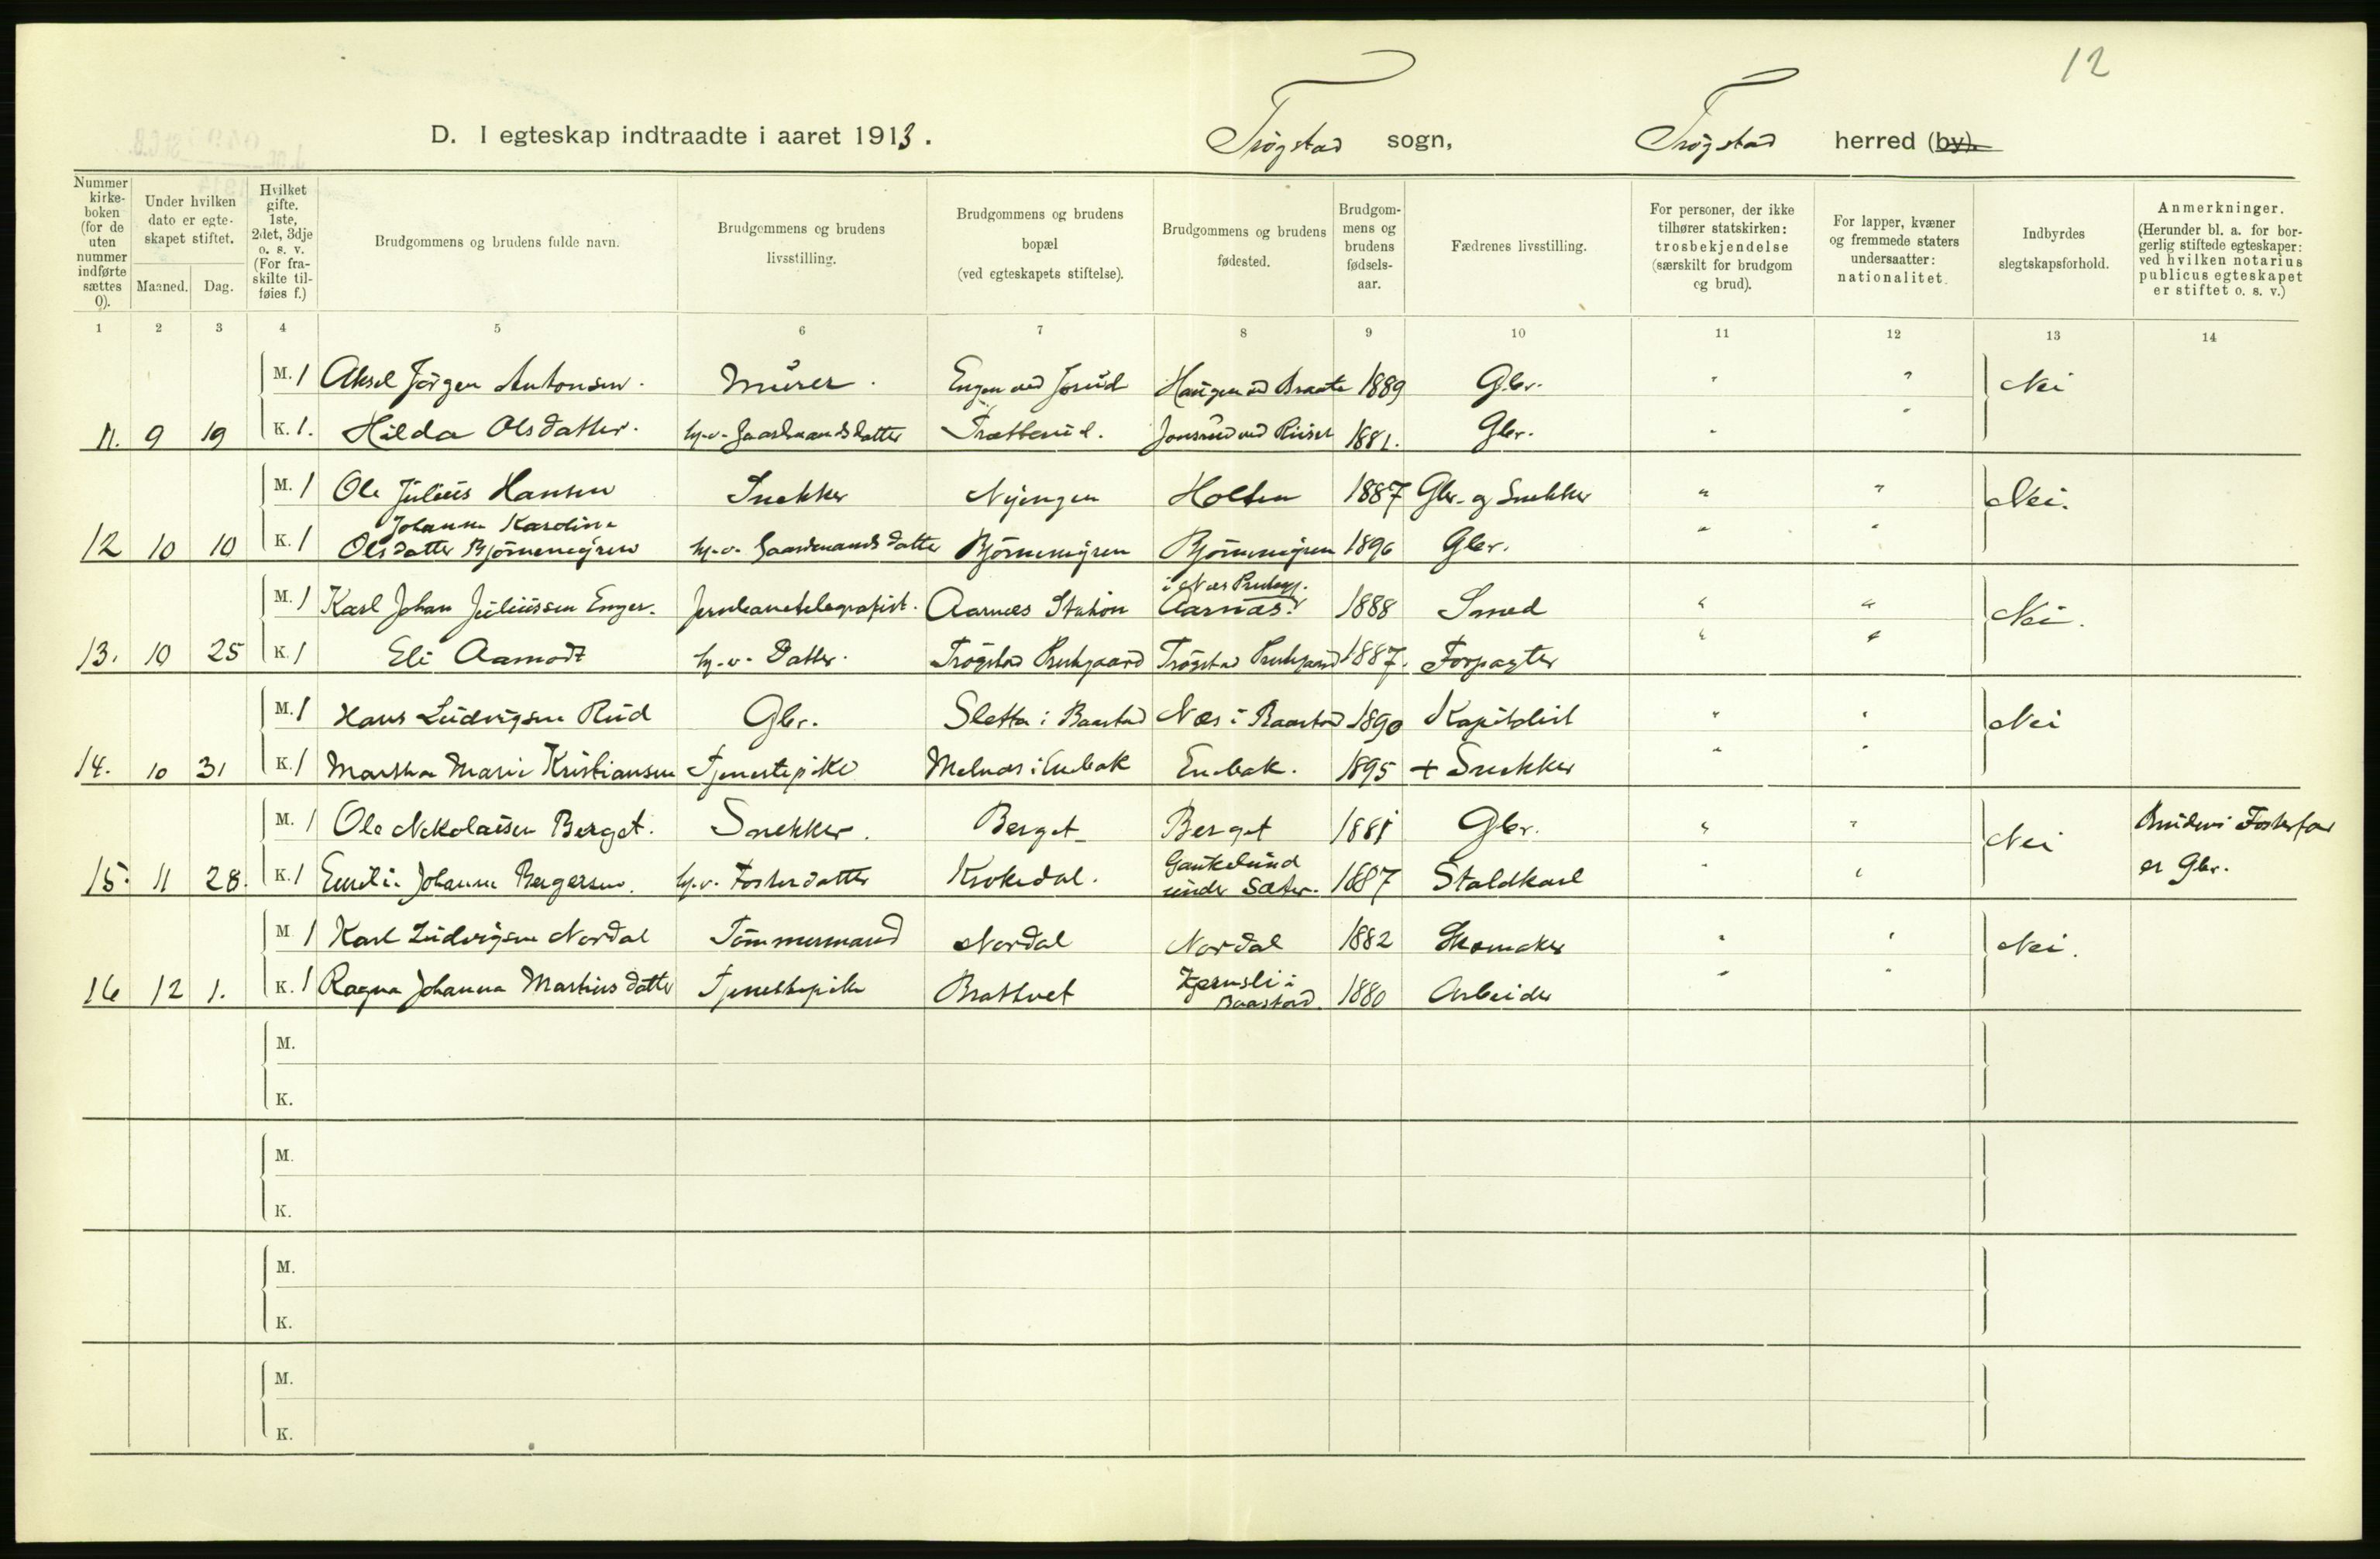 12
D. I egteskap indtraadte i aaret 1913. Trøgstad sogn, Trøgstad herred (by).
Nummer kirke-boken (for de uten nummer indførte sættes 0).
Under hvilken dato er egte-skapet stiftet.
Maaned. Dag.
Hvilket gifte. 1ste, 2det, 3dje o. s. v. (For fra-skilte til-føies f.)
Brudgommens og brudens fulde navn.
Brudgommens og brudens livsstilling.
Brudgommens og brudens bopæl (ved egteskapets stiftelse).
Brudgommens og brudens fødested.
Brudgom-mens og brudens fødsels-aar.
Fædrenes livsstilling.
For personer, der ikke tilhører statskirken: trosbekjendelse (særskilt for brudgom og brud).
For lapper, kvæner og fremmede staters undersaatter: nationalitet.
Indbyrdes slegtskapsforhold.
Anmerkninger. (Herunder bl. a. for bor-gerlig stiftede egteskaper: ved hvilken notarius publicus egteskapet er stiftet o. s. v.)
1 2 3 4 5 6 7 8 9 10 11 12 13 14
M. 1 Aksel Jørgen Antonsen. Murer. Engen ved Jorud Haugen ved Braate 1889 Gbr. " " Nei
11. 9 19 K. 1. Hilda Olsdatter. hj.v. Gaardmandsdatter Trætterud. Jonsrud ved Riiser 1881. Gbr. " "
M. 1 Ole Julius Hansen Snekker Nyengen Holten 1887 Gbr. og Snekker " " Nei.
Johanne Karoline
12 10 10 K. 1 Olsdatter Bjørnemyren hj.v. Gaardmandsdatter Bjørnemyren Bjørnemyren 1896 Gbr. " "
i Nes Prestegj.
M. 1 Karl Johan Juliussen Enger. Jernbanetelegrafist. Aarnes Station Aarnæs. 1888 Smed " " Nei.
13. 10 25 K. 1 Eli Aamodt hj.v. Datter. Trøgstad Prestgaard Trøgstad Prestgaard 1887. Forpagter " "
M. 1 Hans Ludvigsen Rud Gbr. Sletta i Baastad Næs i Baastad 1890 Kapitalist " " Nei
14. 10 31 K. 1 Martha Marie Kristiansen Tjenestepike Melnæs i Enebak Enebak. 1895 + Snekker " "
M. 1 Ole Nikolaisen Berget. Snekker. Berget Berget 1881 Gbr. " " Nei Brudens Fosterfar
15. 11 28. K. 1 Emilie Johanne Bergersen. hj.v. Fosterdatter Krokedal. Gaukelund under Sæter. 1887 Staldkarl " " er Gbr.
M 1 Karl Ludvigsen Nordal Tømmermand Nordal Nordal 1882 Skomaker " " Nei.
16 12 1. K. 1 Ragna Johanna Martinsdatter Tjenestepike Brattvet Kjernsli i Baastad. 1880 Arbeider " "
M.
K.
M.
K.
M.
K.
M.
K.